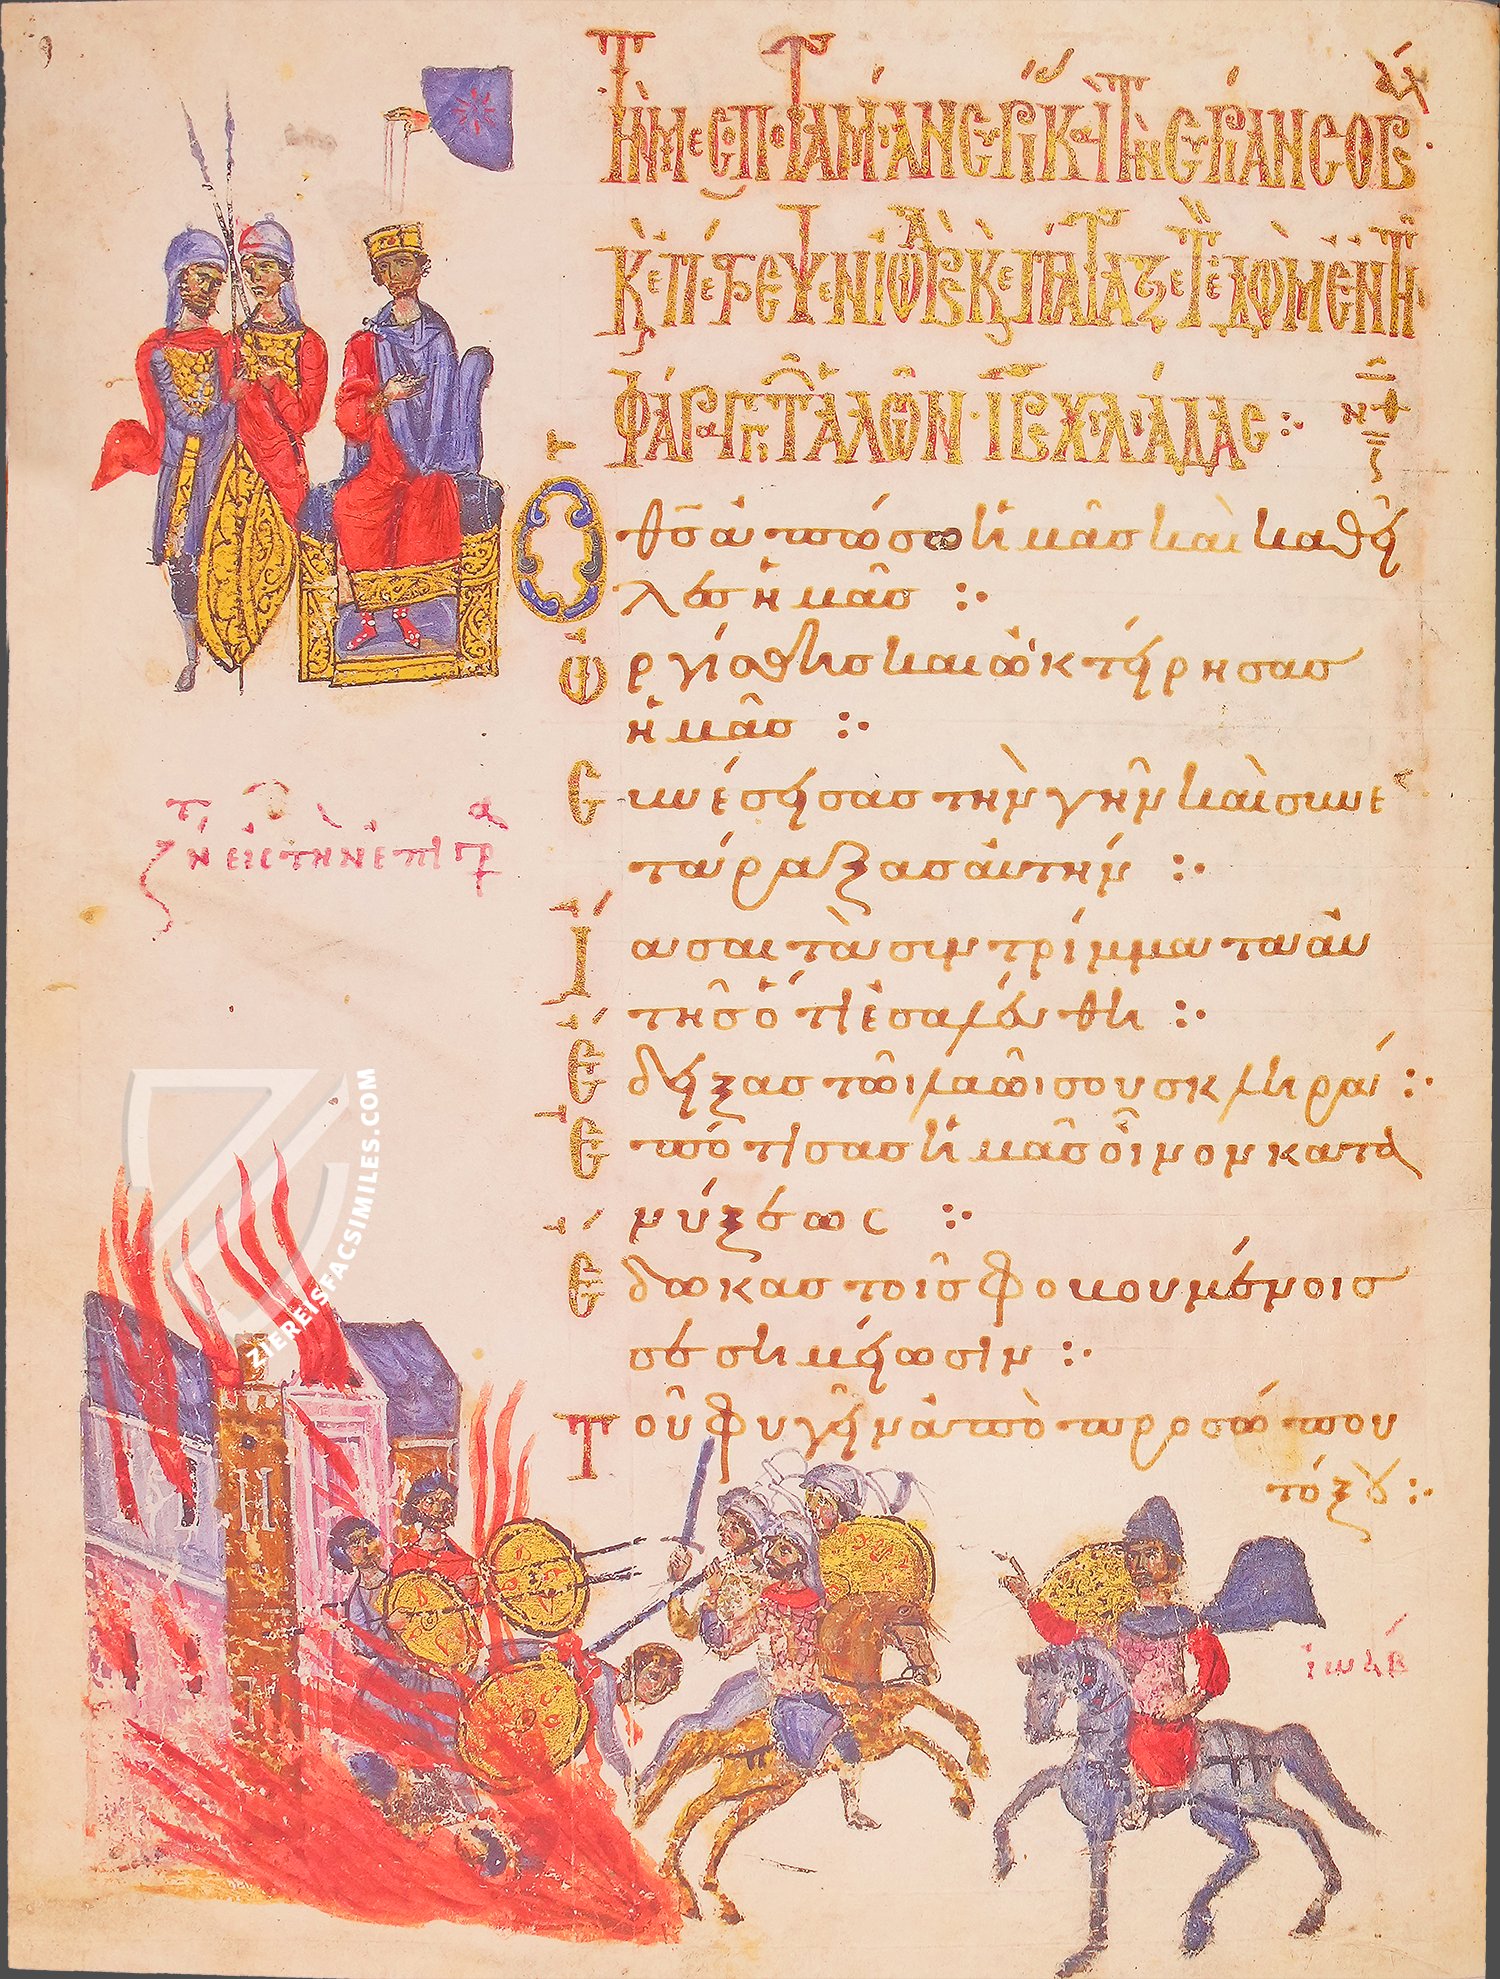 Τὴν μεσοποταμίαν συρίαν κὲ τὴν συρίαν σοβὰλ
κὲ ἐπέστρεψεν ἰωὰβ κὲ ἐπάταξε τὸν ἐδὼμ ἐν τῇ
φάραγγι τῶν ἁλῶν· ιβ χιλιάδας :·
Ὁ θς ἀπώσω ἡμᾶς καὶ καθεῖ
λες ἡμᾶς :·
Ὠργίσθης καὶ ὠκτείρησας
ἡμᾶς :·
Συνέσεισας τὴν γῆν καὶ συνε
τάραξας αὐτήν :·
Ἴασαι τὰ συντρίμματα αὐ
τῆς ὅτι ἐσαλεύθη :·
Ἔδειξας τῶι λαῶι σου σκληρά :·
Ἐπότισας ἡμᾶς οἶνον κατα
νύξεως :·
Ἔδωκας τοῖς φοβουμένοις
σε σημείωσιν :·
Τοῦ φυγεῖν ἀπὸ προσώπου
τόξου :·
εἰς τὴν ἐπιγρ
ἰωάβ
ZIEREISFACSIMILES.COM